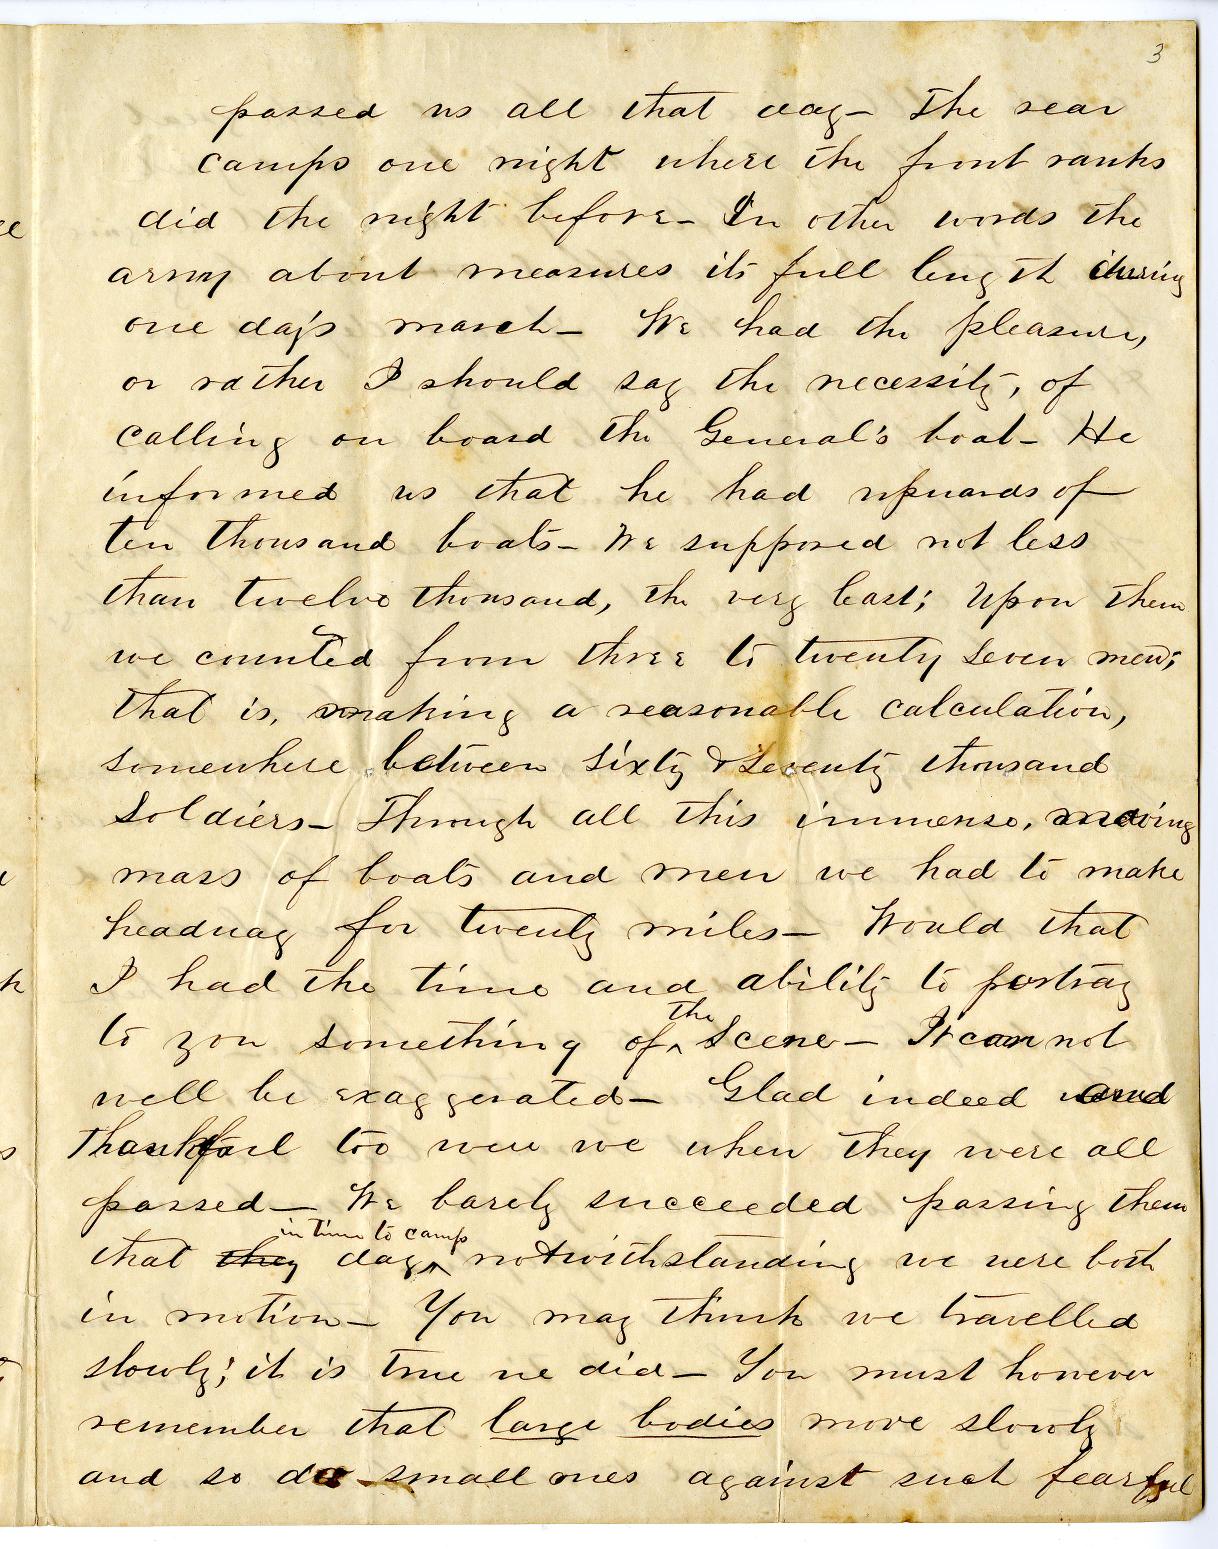 3
passed us all that day— The rear
camps one night where the front ranks
did the night before— In other words the
army about measures its full length during
one day's march— We had the pleasure,
or rather I should say the necessity, of
calling on board the General's boat— He
informed us that he had upwards of
ten thousand boats— We supposed not less
than twelve thousand, the very least; Upon them
we counted from three to twenty seven men;
that is, making a reasonable calculation,
somewhere between sixty & seventy thousand
soldiers— Through all this immense, moving
mass of boats and men we had to make
headway for twenty miles— Would that
I had the time and ability to portray
to you something of the scene— It can not
well be exaggerated— Glad indeed and
thankful too were we when they were all
passed— We barely succeeded passing them
that they day in time to camp notwithstanding we were both
in motion— You may think we travelled
slowly; it is true we did— You must however
remember that large bodies move slowly
and so do small ones against such fearful